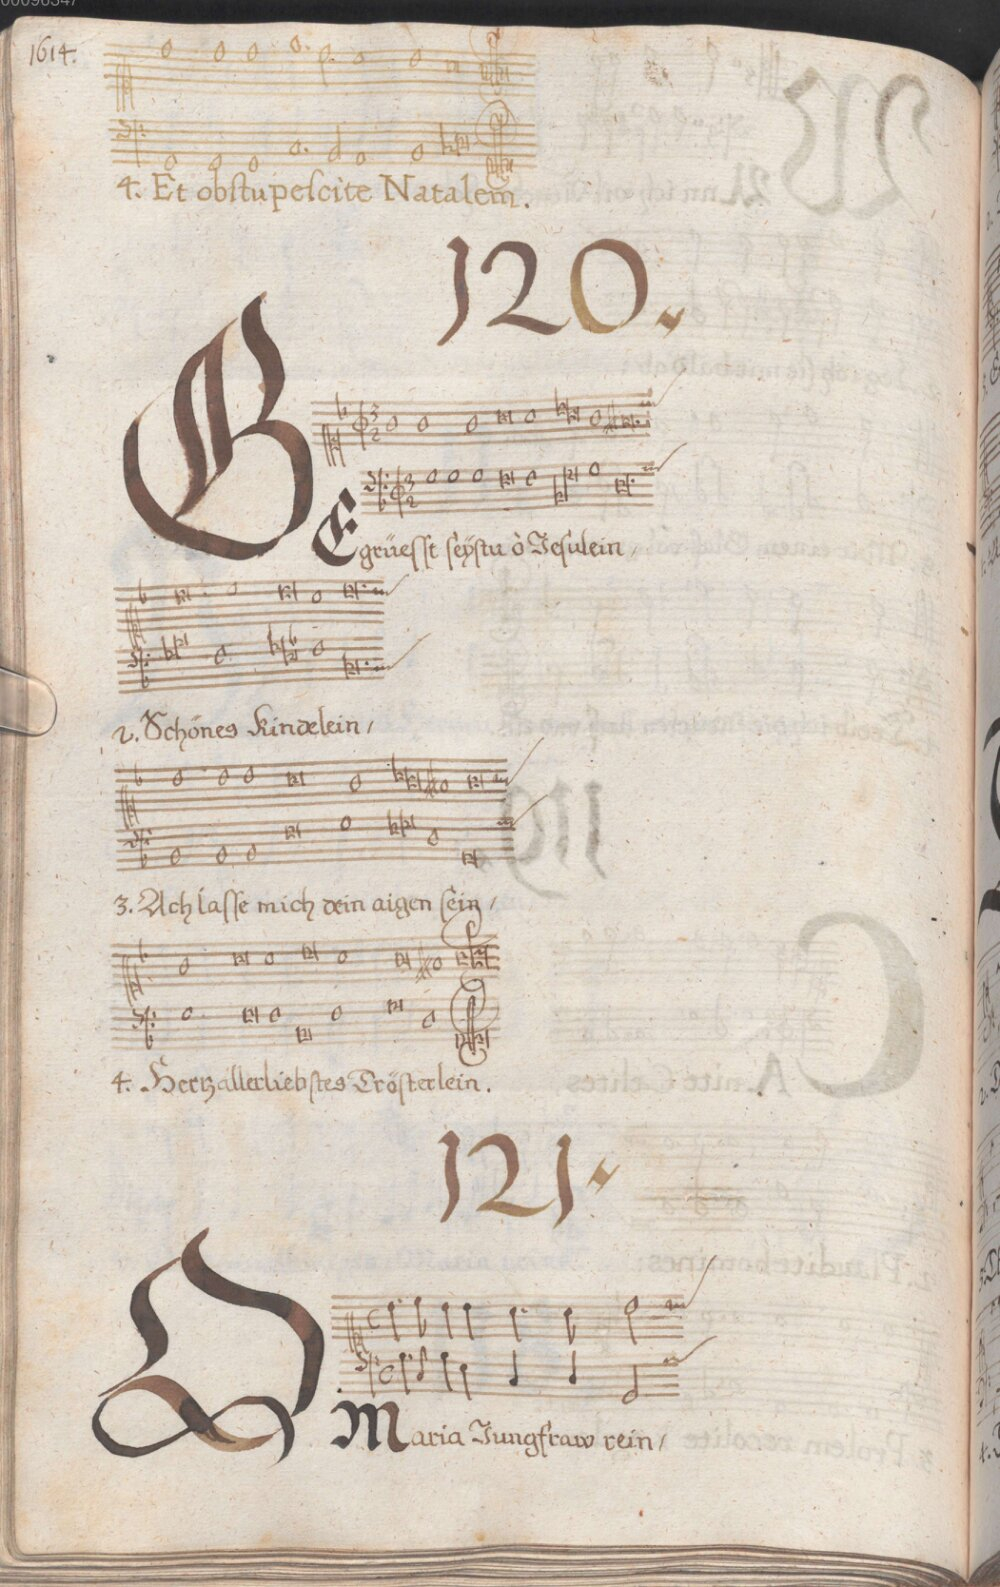 1614.
4. Et obstupescite Natalem.
120.
GEgrüesst seÿstu ò Jesulein
2. Schönes Kindelein /
3. Ach lasse mich dein aigen sein /
4. Hertzallerliebstes Trösterlein.
121.
O Maria Jungfraw rein /